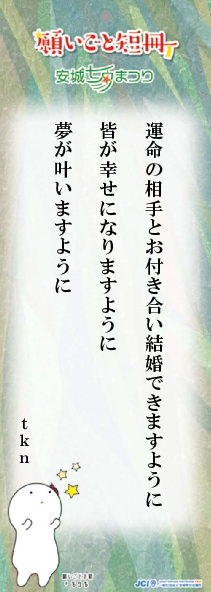 願いごと短冊
安城七夕まつり
運命の相手とお付き合い結婚できますように
皆が幸せになりますように
夢が叶いますように
tkn
JCI